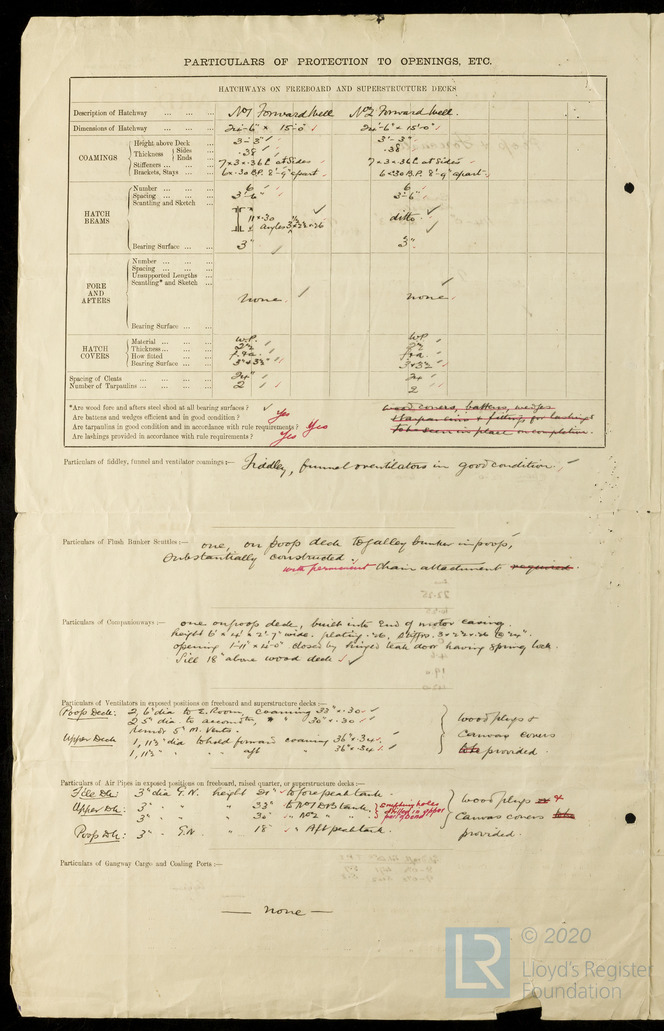 PARTICULARS OF PROTECTION TO OPENINGS, ETC.
HATCHWAYS ON FREEBOARD AND SUPERSTRUCTURE DECKS
Description of Hatchway ... ... ... No 1 Forward Well No 2 Forward Well.
Dimensions of Hatchway ... ... ... 24'-6" × 15'-0" ✓ 24'-6" × 15'-0" ✓
COAMINGS
Height above Deck ... 3'-3" 3'-3"
Thickness { Sides .38 .38
Ends
Stiffeners ... ... ... 7×3×.36 at sides 7×3×.36 at sides
Brackets, Stays ... ... 6×.30 B.P. 8'-9" apart 6×.30 B.P. 8'-9" apart
HATCH BEAMS
Number ... ... ... 6 6
Spacing ... ... ... 3'-6" 3'-6"
Scantling and Sketch ...
11×.30 ditto
angles
Bearing Surface ... ... 3" 3"
FORE AND AFTERS
Number ... ... ...
Spacing ... ... ...
Unsupported Lengths ...
Scantling* and Sketch ...
none. none.
Bearing Surface ... ...
HATCH COVERS
Material ... ... ... W.P. W.P.
Thickness ... ... ... 2½ 2½
How fitted ... ... f.&a. f&a
Bearing Surface ... ... 3"×3½" 3×3½
Spacing of Cleats ... ... ... ... 24" 24
Number of Tarpaulins ... ... ... ... 2 2
*Are wood fore and afters steel shod at all bearing surfaces ? ✓ wood covers, battens, wedges
Are battens and wedges efficient and in good condition ? Yes tarpaulins & fittings for lashings
Are tarpaulins in good condition and in accordance with rule requirements ? Yes to be seen in place on completion.
Are lashings provided in accordance with rule requirements ? Yes
Particulars of fiddley, funnel and ventilator coamings :— Fiddley, funnel & ventilators in good condition.
Particulars of Flush Bunker Scuttles :— one, on poop deck to galley bunker in poop,
substantially constructed.
with permanent chain attachment required.
Particulars of Companionways :— one on poop deck, built into end of motor casing.
height 6' × 4' × 2'-7" wide. plating .26, stiffrs. 3×2½×.26 @ 24".
opening closed by hinged teak door having spring lock.
Sill 18" above wood deck ✓
Particulars of Ventilators in exposed positions on freeboard and superstructure decks :—
Poop Deck: 2, 6" dia to E.Room, coaming 33" × .30 ✓
2 5" dia. to accomtn, " 30" × .30 ✓
Upper Deck 1, 11½" dia to hold forward coaming 36" × .34 ✓
1, 11½" " " aft " 36" × .34 ✓
wood plugs &
canvas covers
to be provided.
Particulars of Air Pipes in exposed positions on freeboard, raised quarter, or superstructure decks :—
3" dia G.N. height 21" ✓ to forepeak tank.
Upper Dk: 3" " " 33" to No 1 DB tank.
3" " " 30" " No 2 " "
Poop Dk: 3" " G.N. " 18" " Aft peak tank.
emptying holes
drilled in upper
part of bend
wood plugs &
canvas covers to be
provided.
Particulars of Gangway Cargo and Coaling Ports :—
— none —
LR
© 2020
Lloyd's Register
Foundation